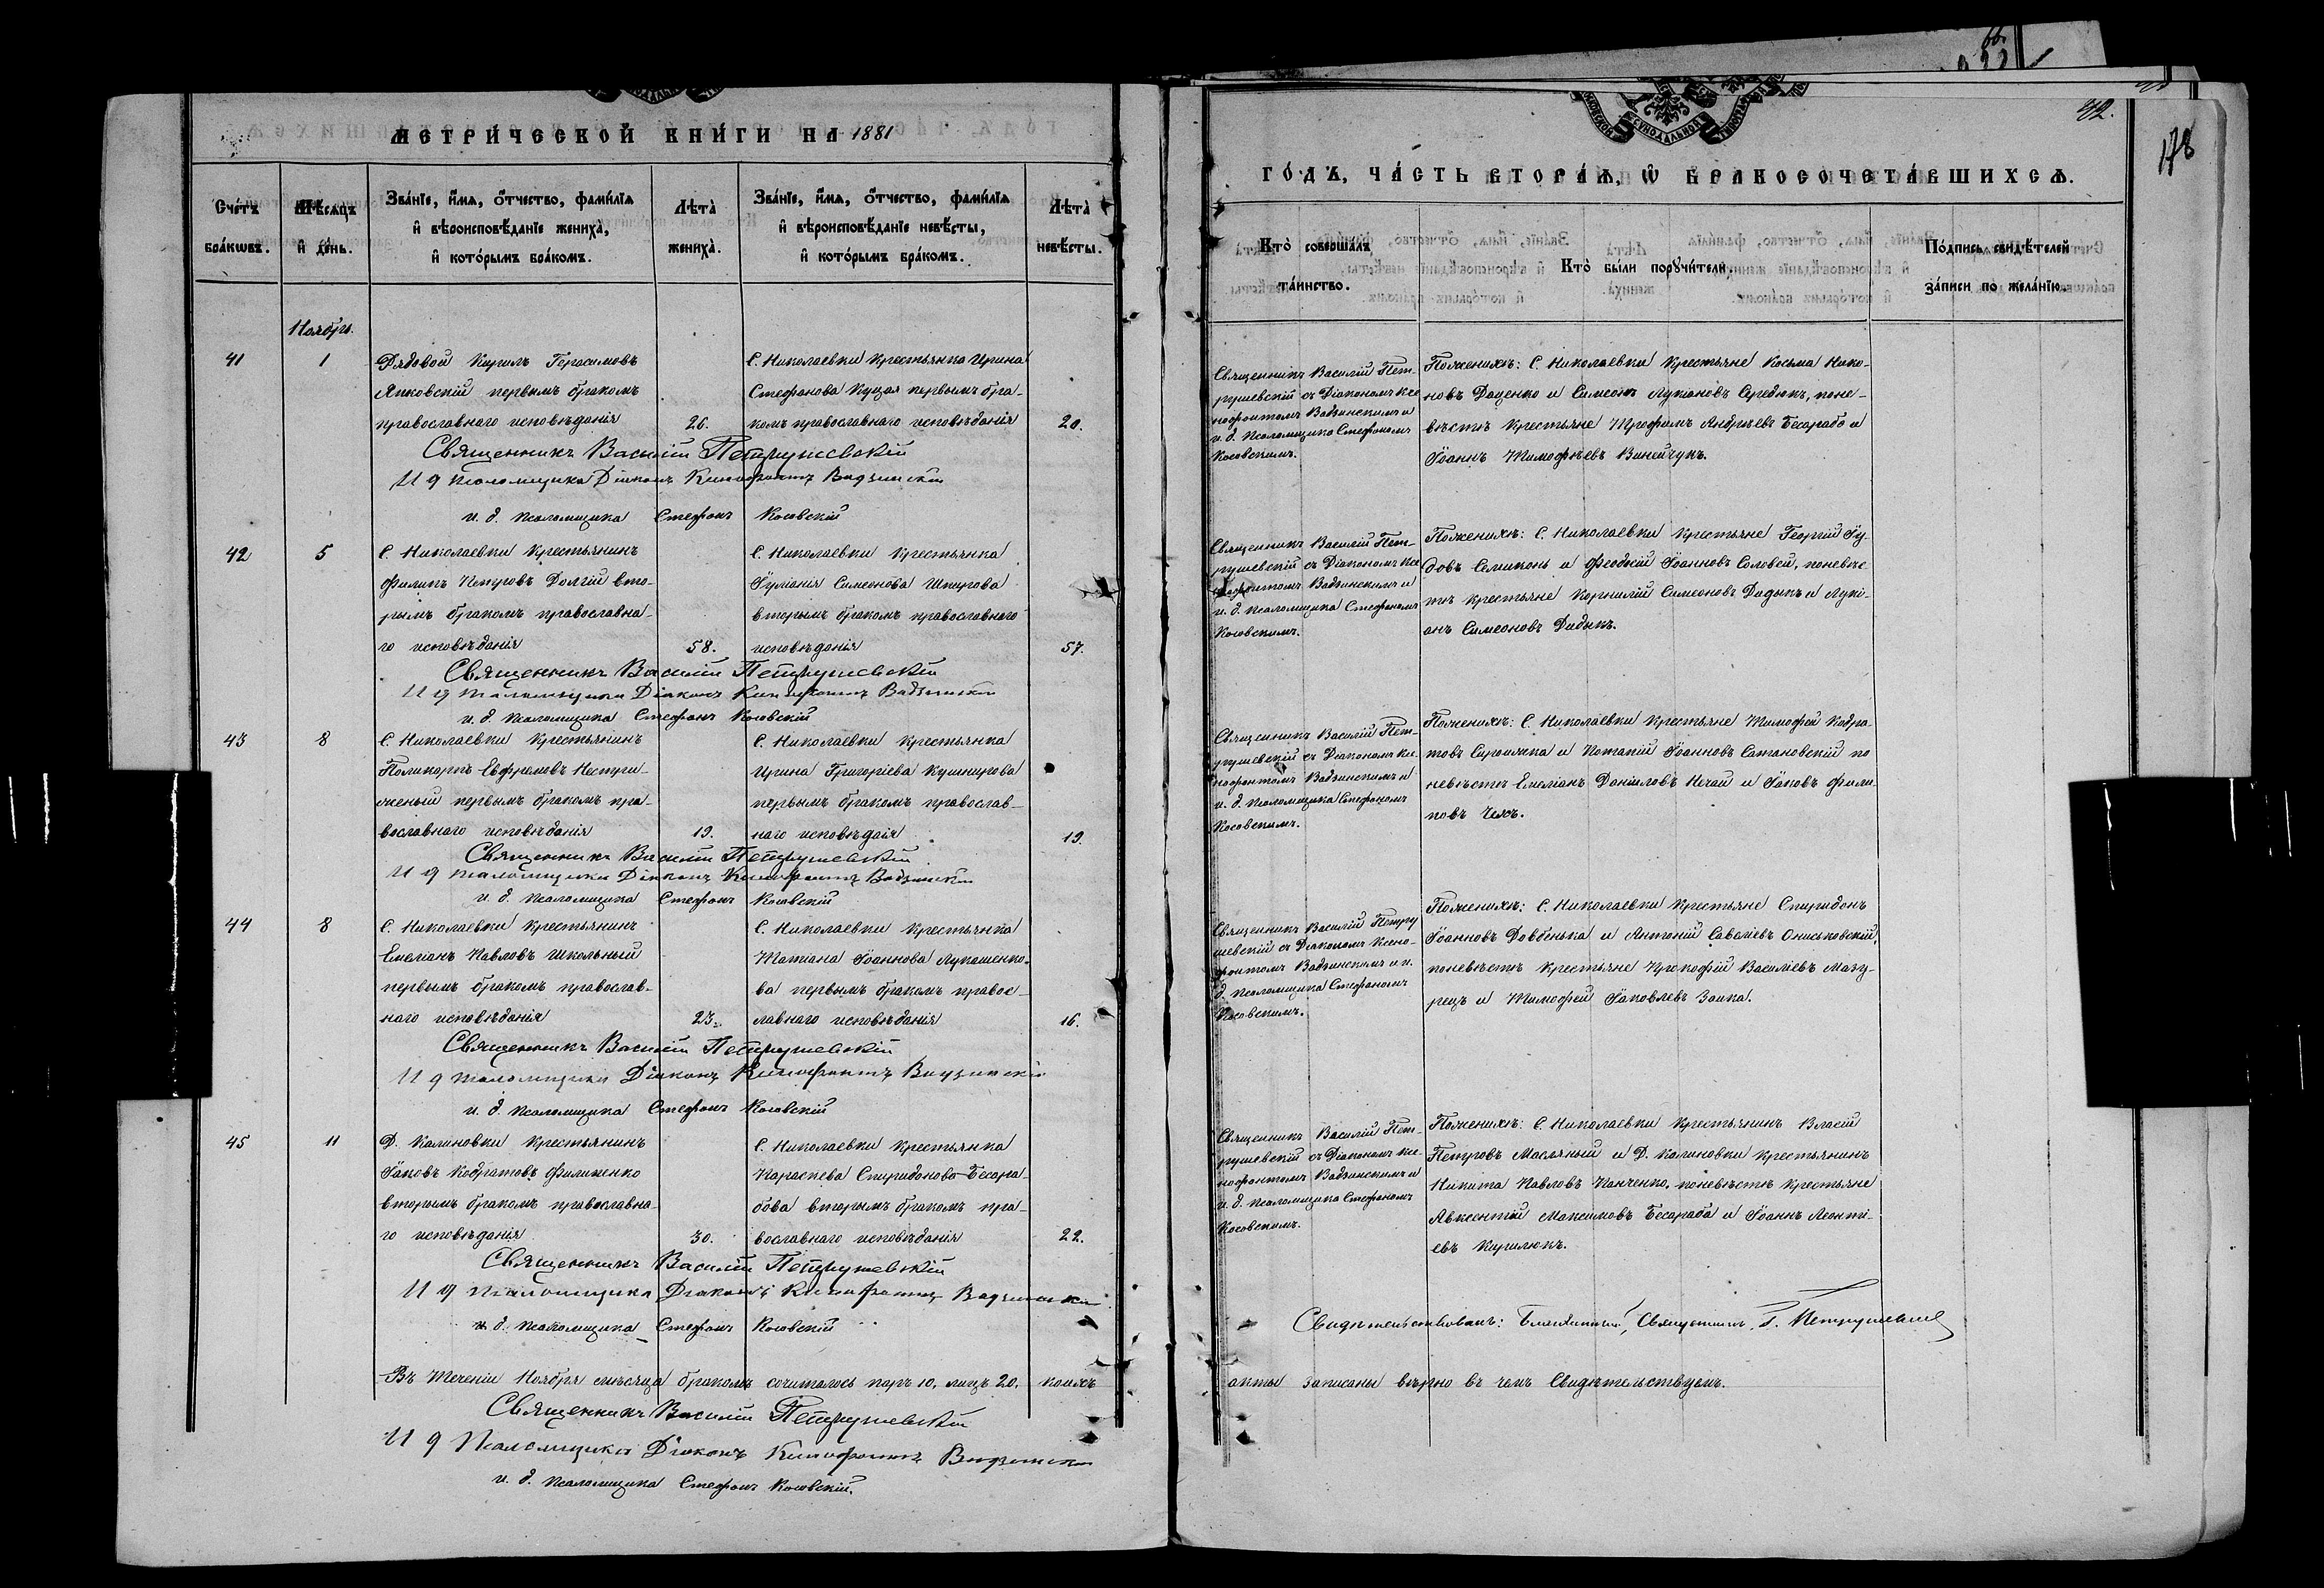 МЕТРИ́ЧЕСКОЙ КНИ́ГИ НА 1881
Сче́тъ бра́кѡвъ.
Мѣ́сяцъ и де́нь.
Зва́нїе, и́мя, о́тчество, фами́лїя
и вѣроисповѣ́данїе жениха̀,
и кото́рымъ бра́комъ.
Лѣта̀ жениха̀.
Зва́нїе, и́мя, о́тчество, фами́лїя
и вѣроисповѣ́данїе невѣ́сты,
и кото́рымъ бра́комъ.
Лѣта̀ невѣ́сты.
Ноябрь.
41
1
Рядовой Кирилъ Герасимовъ
Янковскій первымъ бракомъ
православнаго исповѣданія
26.
С. Николаевки Крестьянка Ирина
Стефанова Куцая первымъ бра-
комъ православнаго исповѣданія
20.
Священникъ Василій Петрушевскій
И д псаломщика Діаконъ Ксенофонтъ Вадзинскій
и. д. псаломщика Стефанъ Косовскій
42
5
С. Николаевки Крестьянинъ
Филипъ Петровъ Долгій вто-
рымъ бракомъ православна-
го исповѣданія
58.
С. Николаевки Крестьянка
Іуліанія Симеонова
вторымъ бракомъ православнаго
исповѣданія
57.
Священникъ Василій Петрушевскій
И д псаломщика Діаконъ Ксенофонтъ Вадзинскій
и. д. псаломщика Стефанъ Косовскій
43
8
С. Николаевки Крестьянинъ
Поликарпъ Евфремовъ
первымъ бракомъ пра-
вославнаго исповѣданія
19.
С. Николаевки Крестьянка
Ирина Григоріева Кушнирова
первымъ бракомъ православ-
наго исповѣдаія
19.
Священникъ Василій Петрушевскій
И д псаломщика Діаконъ Ксенофонтъ Вадзинскій
и. д. псаломщика Стефанъ Косовскій
44
8
С. Николаевки Крестьянинъ
Емеліанъ Павловъ Школьный
первымъ бракомъ православ-
наго исповѣданія
23.
С. Николаевки Крестьянка
Татіана Іоаннова Лукашенко-
ва первымъ бракомъ правос-
лавнаго исповѣданія
16.
Священникъ Василій Петрушевскій
И д псаломщика Діаконъ Ксенофонтъ Вадзинскій
и. д. псаломщика Стефанъ Косовскій
45
11
Д. Калиновки Крестьянинъ
Іаковъ Кодратовъ Филипенко
вторымъ бракомъ православна-
го исповѣданія
30.
С. Николаевки Крестьянка
Параскева Спиридонова Бесара-
бова вторымъ бракомъ пра-
вославнаго исповѣданія
22.
Священникъ Василій Петрушевскій
И д псаломщика Діаконъ Ксенофонтъ Вадзинскій
и. д. псаломщика Стефанъ Косовскій
Въ теченіи Ноября мѣсяца бракомъ сочиталось паръ 10, лицъ 20. коихъ
Священникъ Василій Петрушевскій
И д Псаломщика Діаконъ Ксенофонтъ Вадзинскій
и. д. псаломщика Стефанъ Косовскій.
178
ГО́ДЪ, ЧА́СТЬ ВТОРА́Я, Ѡ БРАКОСОЧЕТА́ВШИХСЯ.
Кто̀ соверша́лъ
та́инство.
Кто̀ бы́ли порꙋчи́тели.
По́дпись свидѣ́телей
за́писи по жела́нїю.
Священникъ Василій Пет-
рушевскій съ Діакономъ Ксе
нофонтомъ Вадзинскимъ и
и. д. псаломщика Стефаномъ
Косовскимъ.
Поженихѣ: С. Николаевки Крестьяне Косьма Нико-
новъ Даценко и Симеонъ Лукіановъ Середюкъ, поне-
вѣстѣ Крестьяне Трофимъ Андрѣевъ Бесарабо и
Іоаннъ Тимофѣевъ Винейчукъ.
Священникъ Василій Пет-
рушевскій съ Діакономъ Ксе
нофонтомъ Вадзинскимъ и
и. д. псаломщика Стефаномъ
Косовскимъ.
Поженихѣ: С. Николаевки Крестьяне Георгій Іу-
довъ и Феодосій Іоанновъ Соловей, поневѣс-
тѣ Крестьяне Корнилій Симеоновъ Дидыкъ и Лукі-
анъ Симеоновъ Дидыкъ.
Священникъ Василій Пет-
рушевскій съ Діакономъ Ксе-
нофонтомъ Вадзинскимъ и
и. д. псаломщика Стефаномъ
Косовскимъ.
Поженихѣ: С. Николаевки Крестьяне Тимофей Кодра-
товъ и Потапій Іоанновъ Сатановскій по
невѣстѣ Емеліанъ Даніиловъ Нечай и Іаковъ Фили-
повъ Чехъ.
Священникъ Василій Петру
шевскій съ Діакономъ Ксено-
фонтомъ Вадзинскимъ и и.
д. псаломщика Стефаномъ
Косовскимъ.
Поженихѣ: С. Николаевки Крестьяне Спиридонъ
Іоанновъ Довбенька и Антоній Савеліевъ Ониськовскій,
поневѣстѣ Крестьяне Прокофій Василіевъ Мазу-
рецъ и Тимофей Іаковлевъ Заика.
Священникъ Василій Пет-
рушевскій съ Діакономъ Ксе-
нофонтомъ Вадзинскимъ и
и. д. псаломщика Стефаномъ
Косовскимъ.
Поженихѣ: С. Николаевки Крестьянинъ Власій
Петровъ Масляный и Д. Калиновки Крестьянинъ
Никита Павловъ Панченко, поневѣстѣ Крестьяне
Авксентій Максимовъ Бесараба и Іоаннъ Леонті-
евъ Кирилюкъ.
Священникъ Петрушевскій
акты записаны вѣрно въ чемъ Свидѣтельствуемъ.